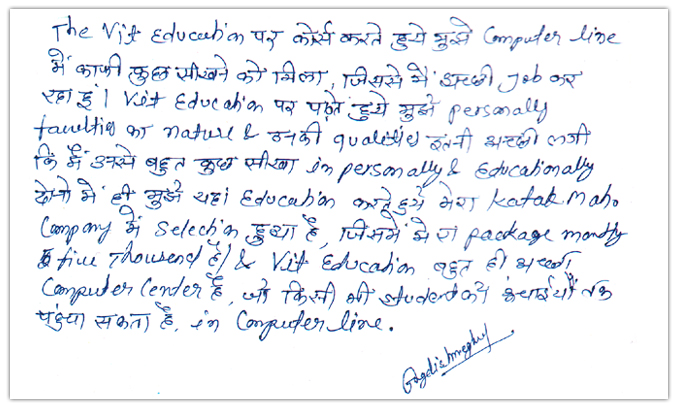 The Vit Education पर कोर्स करते हुये मुझे Computer line
में काफी कुछ सीखने को मिला, जिससे मैं अच्छी Job कर
रहा हूं। Vit Education पर पढते हुये मुझे personally
faculties का nature & उनकी qualities इतनी अच्छी लगी
कि मैं उनसे बहुत कुछ सीखा in personally & Educationally
दोनो में ही मुझे यहां Education करते हुये मेरा Katak Maho.
Company में Selection हुआ है, जिसमें मेरा package montly
five Thousand है/ & Vit Education बहुत ही अच्छा
Computer Center है, जो किसी भी student को ऊंचाईयों तक
पहुंचा सकता है, in Computer line.